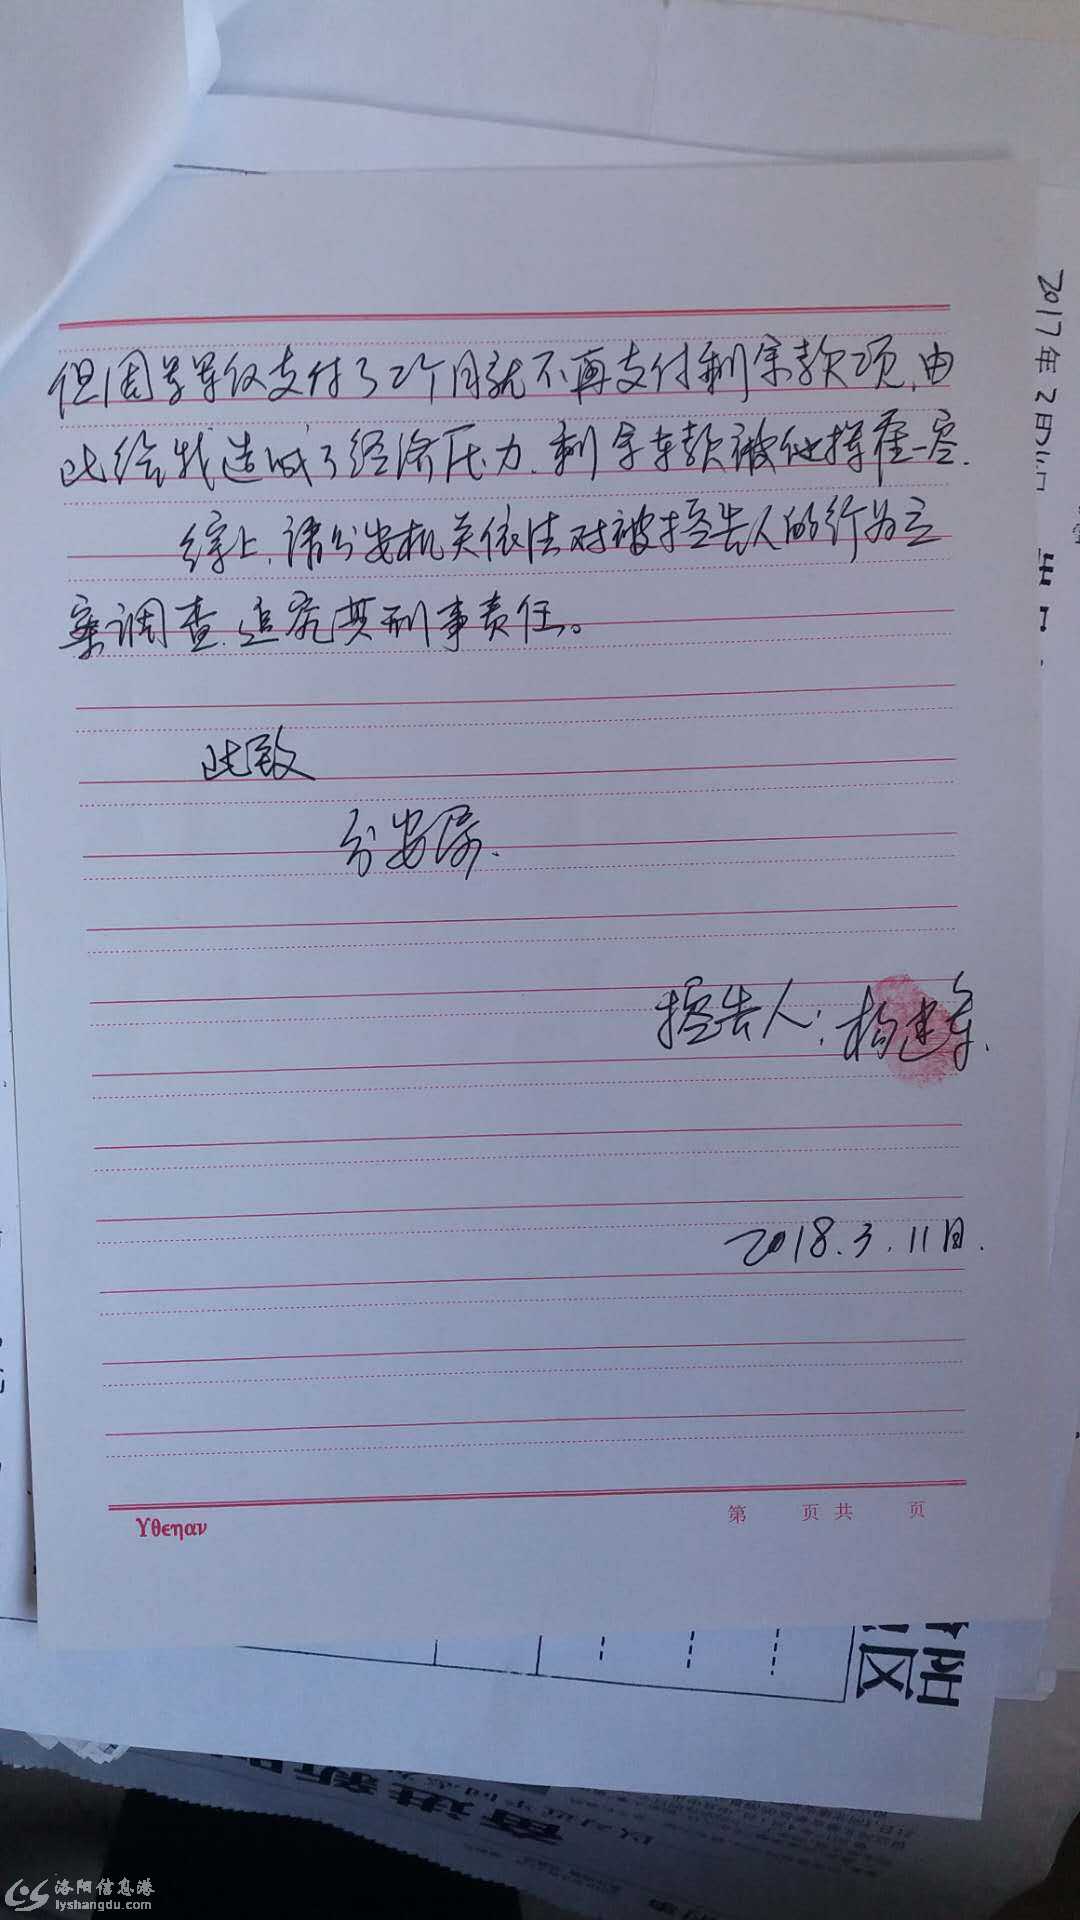 但周某某仅支付了2个月就不再支付剩余款项,由
此给我造成了经济压力.剩余车款被他挥霍一空.
综上,请公安机关依法对被控告人的行为立
案调查,追究其刑事责任。
此致
公安局.
控告人:杨建
2018.3.11日.
Υθεηαν
第 页 共 页
2017年2月
区 阳
洛阳信息港
lyshangdu.com